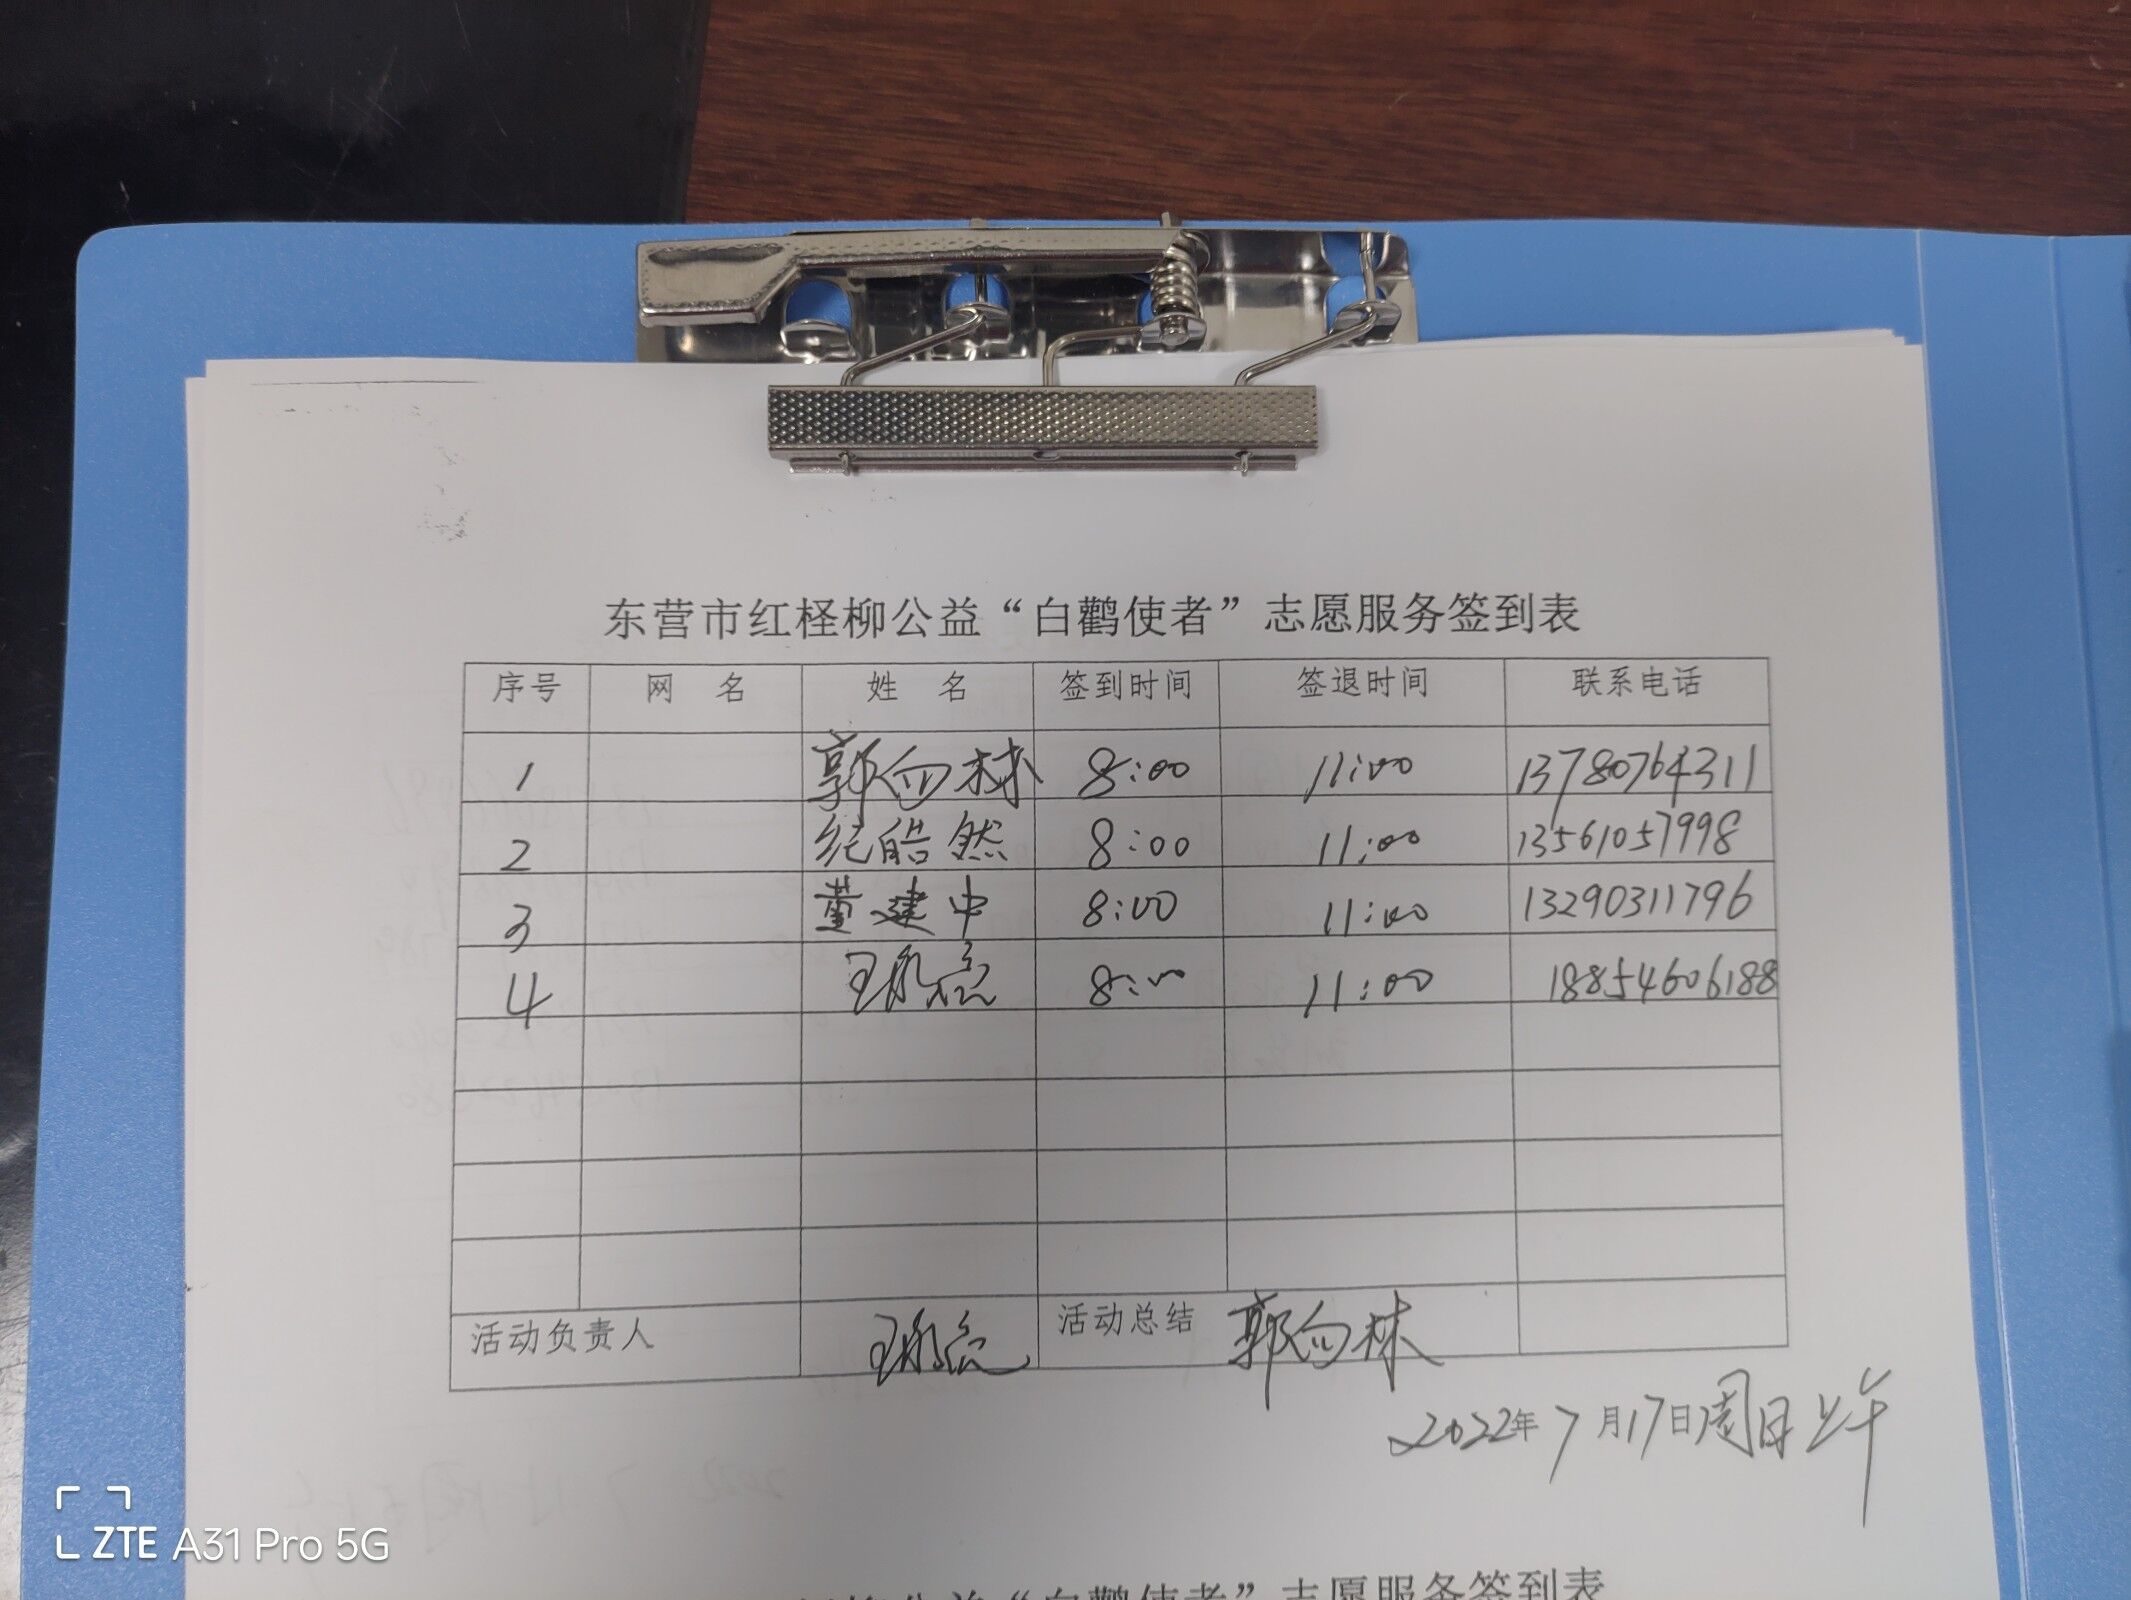 东营市红柽柳公益“白鹳使者”志愿服务签到表
序号 网 名 姓 名 签到时间 签退时间 联系电话
1 郭向林 8:00 11:00 13780764311
2 纪皓然 8:00 11:00 13561057998
3 董建中 8:00 11:00 13290311796
4 8:00 11:00 18854606188
活动负责人 活动总结 郭向林
2022年7月17日周日上午
ZTE A31 Pro 5G
公益“白鹳使者”志愿服务签到表